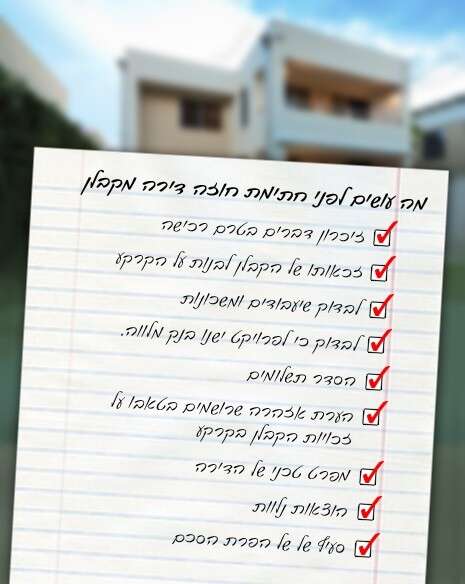 מה עושים לפני חתימת חוזה דירה מקבלן
זיכרון דברים בטרם רכישה
זכאותו של הקבלן לבנות על הקרקע
לבדוק שיעבודים ומשכונות
לבדוק כי לפרויקט ישנו בנק מלווה.
הסדר תשלומים
הערת אזהרה שרושמים בטאבו על
זכויות הקבלן בקרקע
מפרט טכני של הדירה
הוצאות נלוות
סעיף של של הפרת הסכם